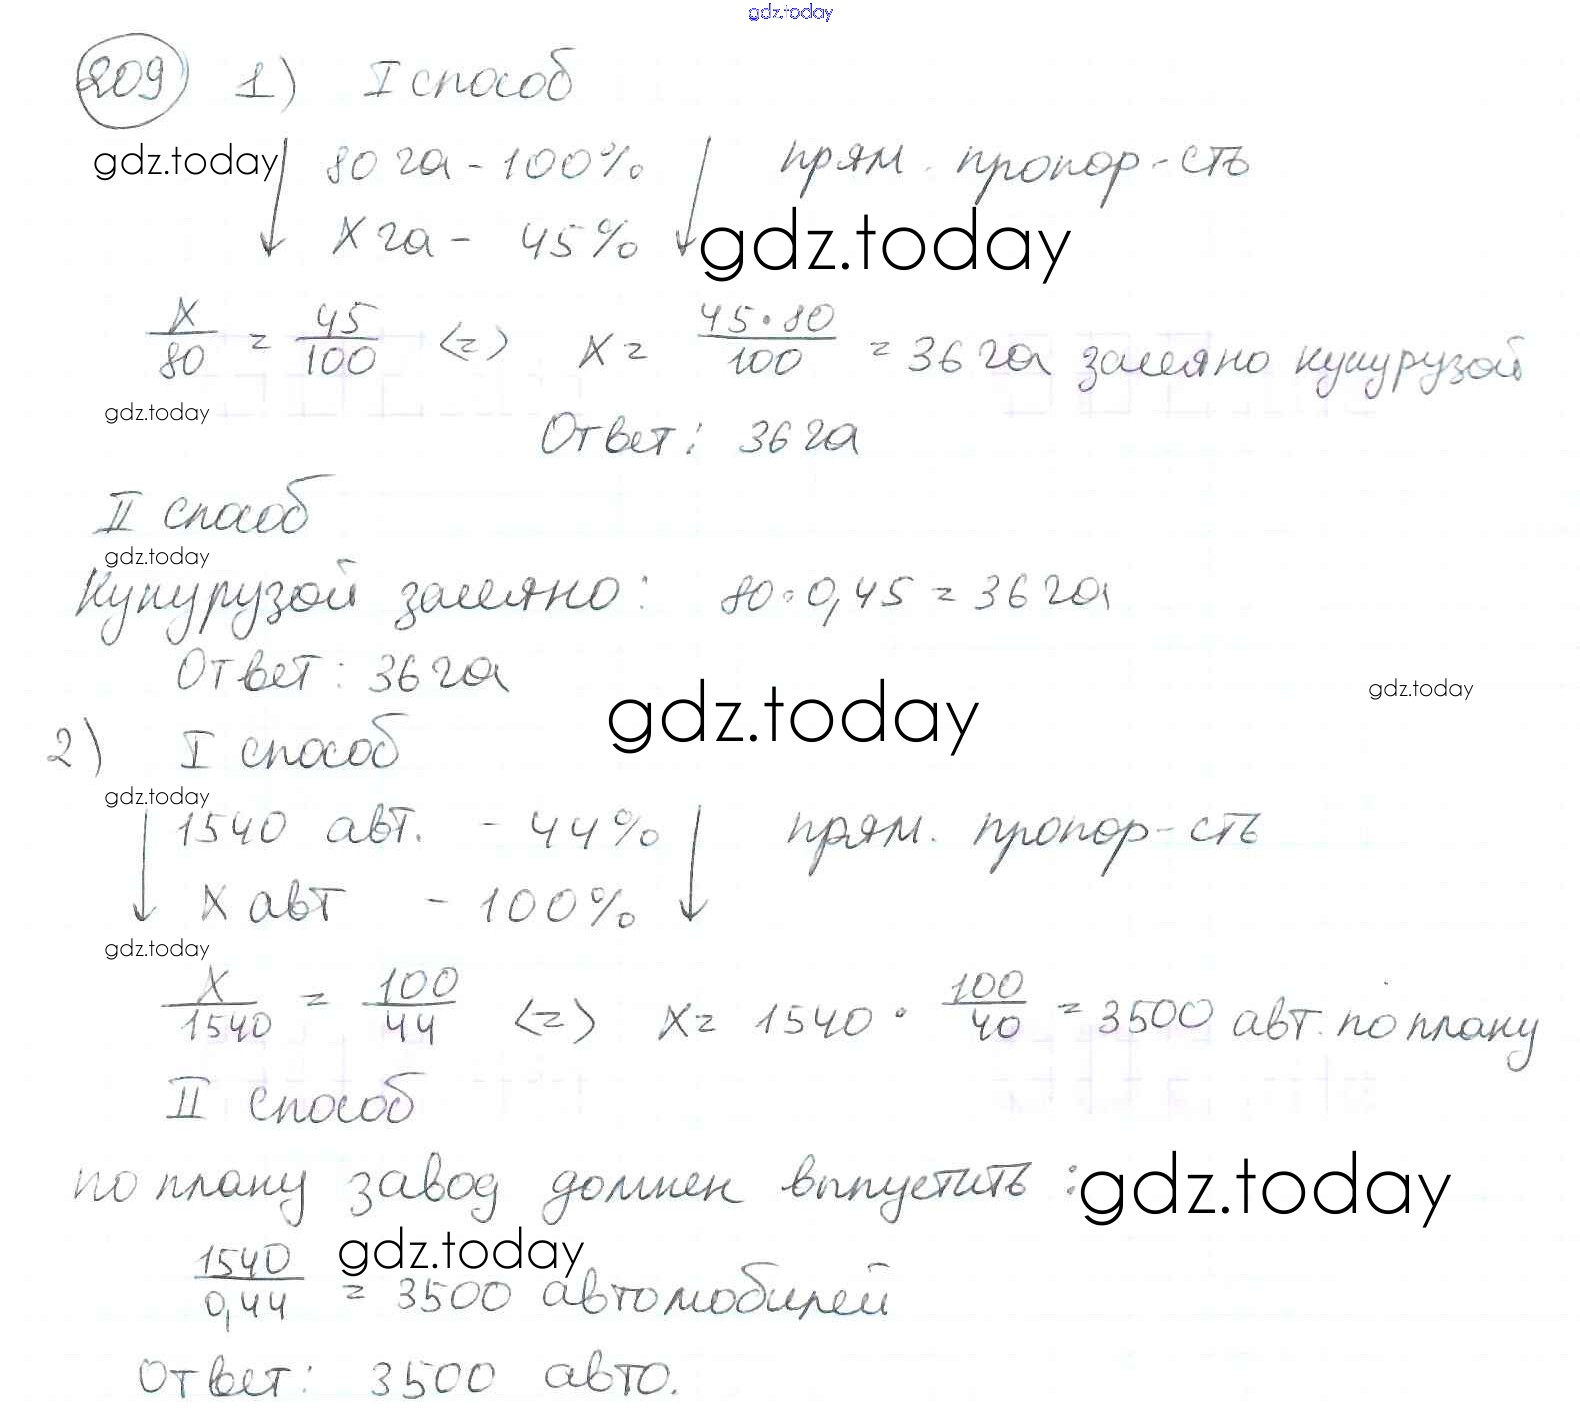 gdz.today
209 1) I способ
gdz.today 80 га - 100% прям. пропор-сть
x га - 45% gdz.today
x/80 = 45/100 <=> x = 45·80/100 = 36 га засеяно кукурузой
gdz.today
Ответ: 36 га
II способ
gdz.today
Кукурузой засеяно: 80·0,45 = 36 га
Ответ: 36 га
gdz.today gdz.today
2) I способ
gdz.today
1540 авт. - 44% прям. пропор-сть
x авт - 100%
gdz.today
x/1540 = 100/44 <=> x = 1540 · 100/40 = 3500 авт. по плану
II способ
по плану завод должен выпустить: gdz.today
gdz.today
1540/0,44 = 3500 автомобилей
Ответ: 3500 авто.